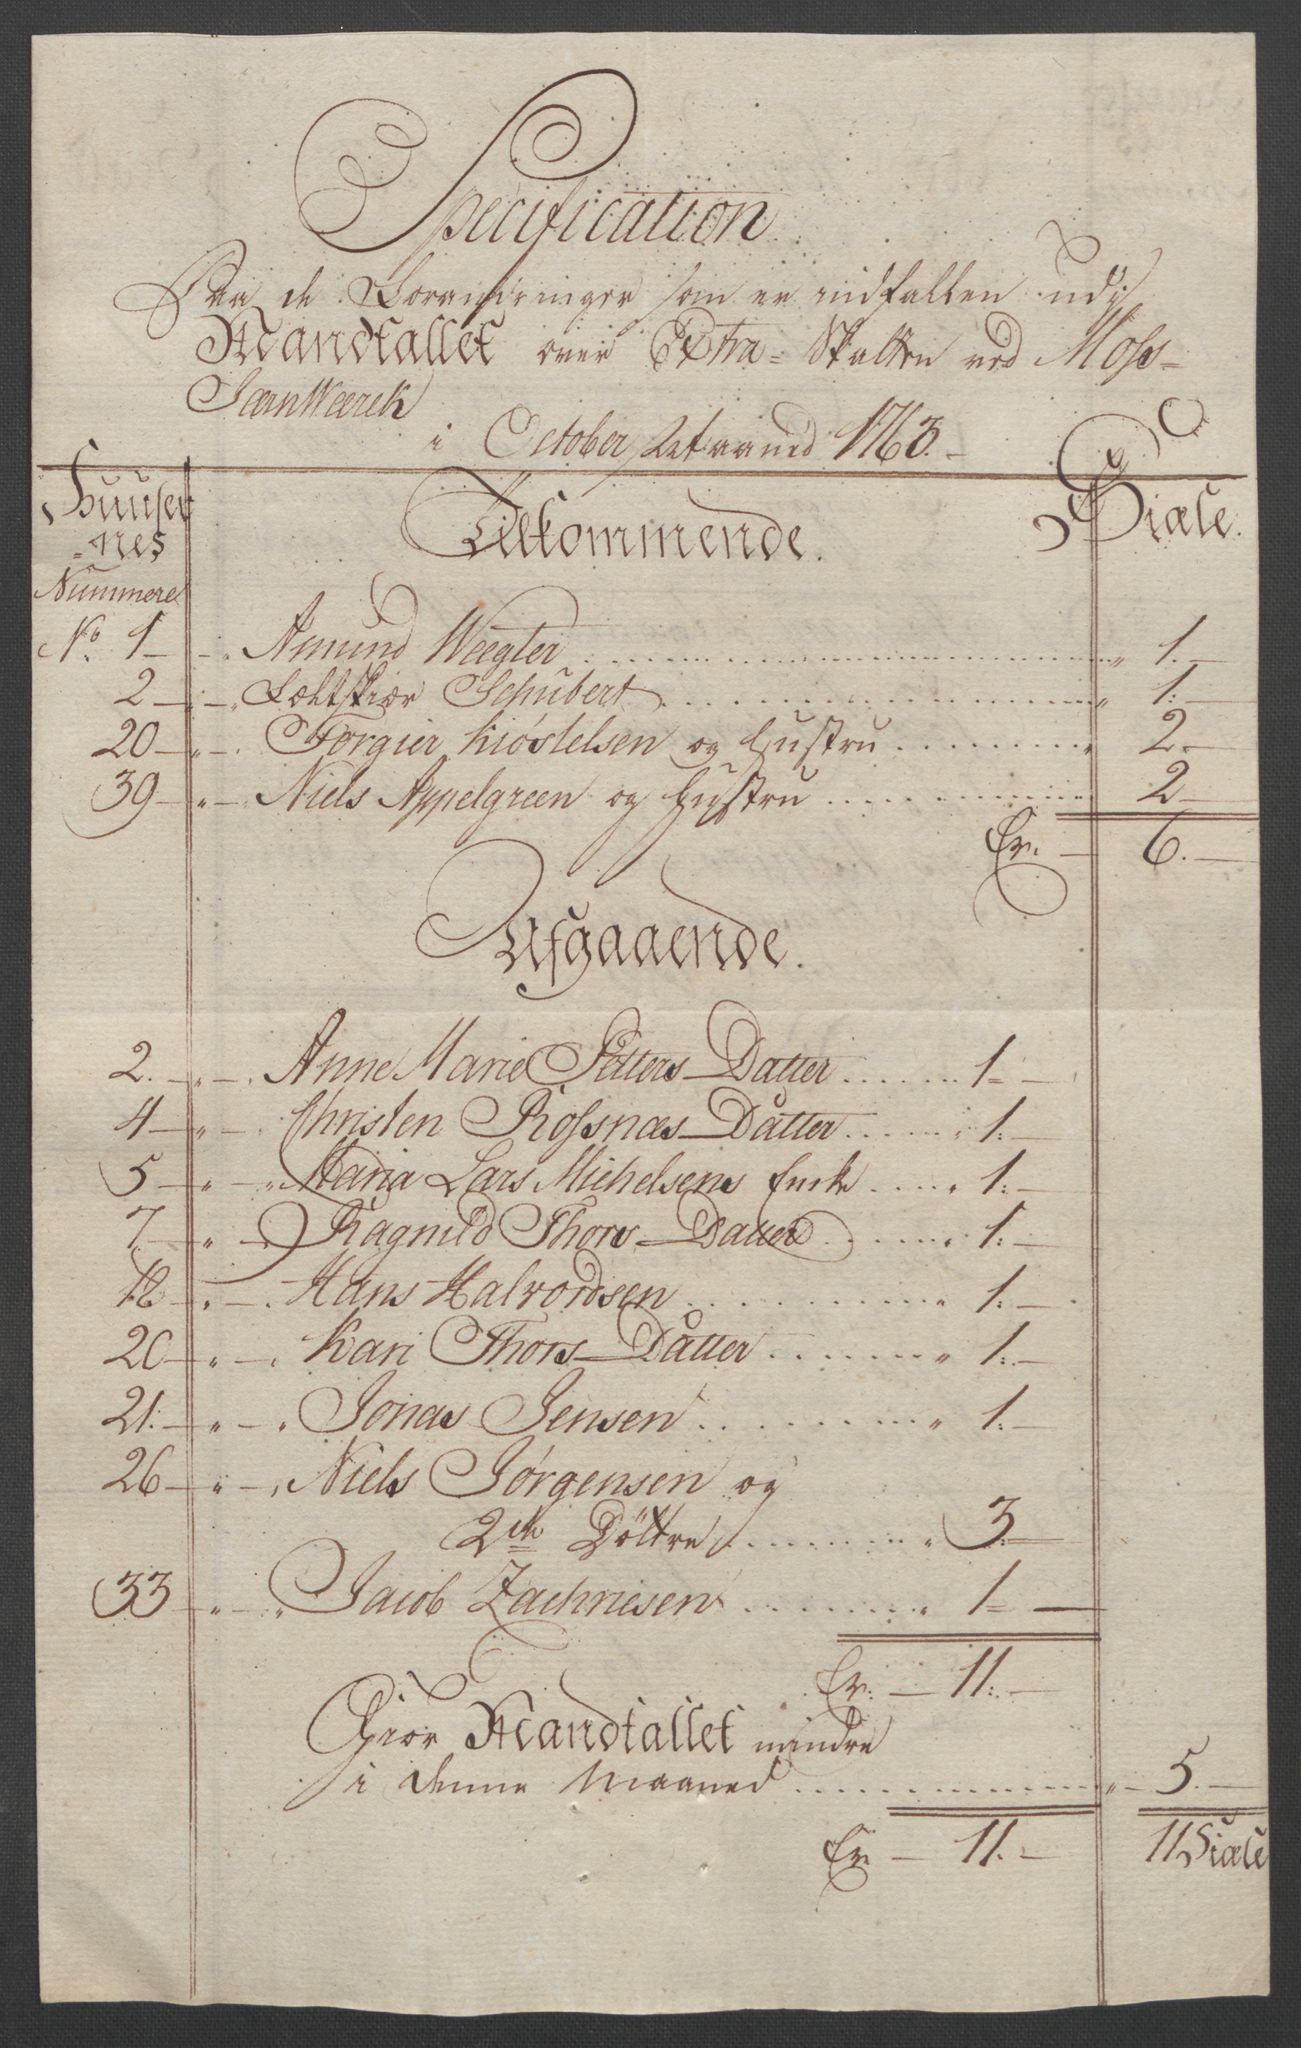 Specification
Paa de Forandringer som er indfalden udj
Mandtallet over Extra=Skatten ved Moss=
JærnWærck
i October Maaned 1763.
Huuser
=nes
Nummere
Tilkommende.
Siæle.
No. 1 Amund Wægter 1.
2 Feltskiær Schubert 1.
20 Torgier Kiøstelsen og Hustru 2.
39 Niels Appelgreen og Hustru 2
Er. 6.
Afgaaende.
2. Anne Marie Petters Datter 1
4 Christen Rossnæs Datter 1.
5 Maria Lars Michelsens Enke 1.
7 Ragnild Thors Datter 1.
18 Hans Halvordsen 1.
20 Kari Thors Datter 1.
21. Jonas Jensen 1.
26 Niels Jørgensen og
2de Døttre 3.
33 Jacob Zachriesen 1
Er. 11.
Giør Mandtallet mindre
i denne Maaned 5.
Er 11. 11 Siæle